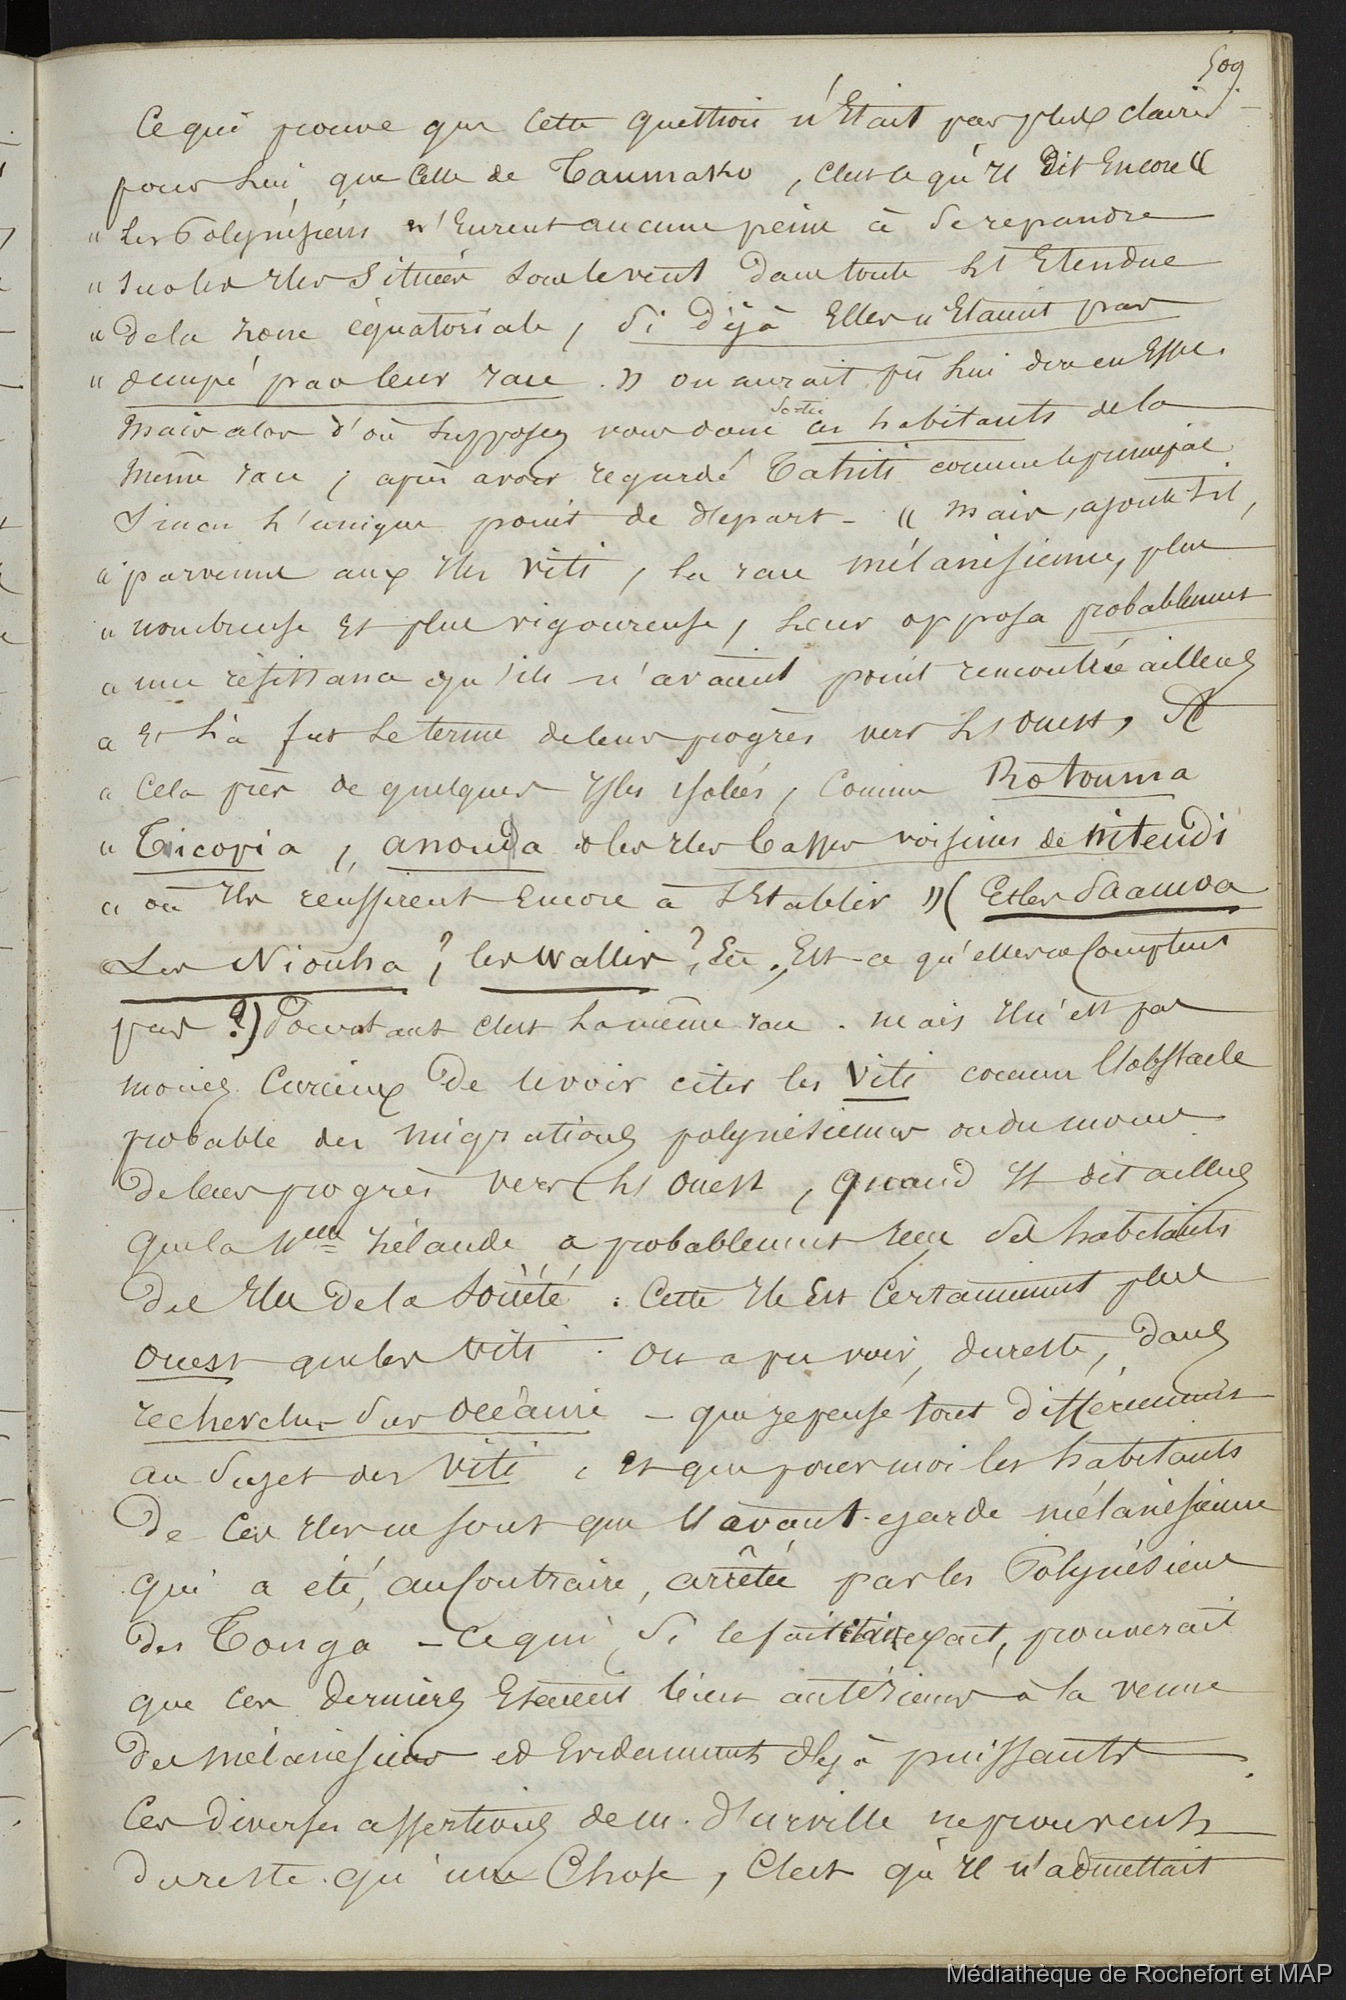 509
Ce qui prouve que cette question n'était pas plus claire
pour lui que celle de Taumako, c'est ce qu'il dit encore «
" Les Polynésiens n'eurent aucune peine à se répandre
" sur les îles situées sous le vent dans toute l'étendue
" de la zone équatoriale, si déjà elles n'étaient pas
" occupé par leur race. » on aurait pû lui dire en effet.
Mais alors d'où supposez vous donc sortis ces habitants de la
même race, après avoir regardé Tahiti comme le principal
sinon l'unique point de départ - « mais, ajoute t-il,
" parvenue aux îles Viti, la race mélanésienne, plus
" nombreuse et plus vigoureuse, leur opposa probablement
" une résistance qu'ils n'avaient point rencontrée ailleurs
" et là fut le terme de leurs progrès vers l'ouest, à
" cela près de quelques îles isolées, comme Rotouma
" Ticopia, anouda & les îles basses voisines de Nitendi
" où ils réussirent encore à s'établir » ( et les Saamoa
Les Niouha ?, les Wallis ?, &a., Est-ce qu'elles ne comptent
pas ?) Pourtant c'est la même race. mais il n'est pas
moins curieux de le voir citer les Viti comme l'obstacle
probable des migrations polynésiennes ou du moins
de leurs progrès vers l'ouest, quand il dit ailleurs
que la Nlle Zélande a probablement reçu des habitants
des îles de la Société : Cette île est certainement plus
ouest que les Viti. On a pu voir, du reste, dans
recherches sur Océanie - que je pense tout différemment
au sujet des Viti, et que pour moi les habitants
de ces îles ne sont que l'avant-garde mélanésienne
qui a été, au contraire, arrêtée par les Polynésiens
des Tonga - ce qui, si le fait était exact, prouverait
que ces derniers étaient bien antérieurs à la venue
des Mélanésiens et évidemment déjà puissants.
Ces diverses assertions de M. d'Urville ne prouvent
du reste qu'une chose, c'est qu'il n'admettait
Médiathèque de Rochefort et MAP